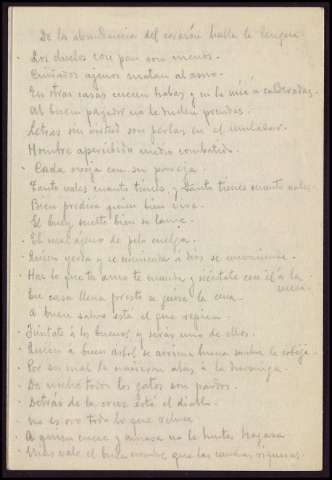 De la abundancia del corazón habla la lengua
Los duelos con pan son menos.
Cuidados ajenos matan al asno.
En otras casas cuecen habas y en la mía a calderadas.
Al buen pagador no le duelen prendas.
Letras sin virtud son perlas en el muladar.
Hombre apercibido medio combatido.
Cada oveja con su pareja
Tanto vales cuanto tienes y tanto tienes cuanto vales.
Bien predica quien bien vive.
El buey suelto bien se lame.
El mal ajeno de pelo cuelga.
Quien yerra y se enmienda a Dios se encomienda.
Haz lo que tu amo te manda y siéntate con él a la
mesa.
En casa llena presto se guisa la cena.
A buen salvo está el que repica.
Júntate á los buenos y serás uno de ellos.
Quien a buen árbol se arrima buena sombra le cobija.
Por su mal le nacieron alas á la hormiga.
De noche todos los gatos son pardos.
Detrás de la cruz está el diablo.
No es oro todo lo que reluce
A quien cuece y amasa no le hurtes hogaza
Más vale el buen nombre que las muchas riquezas.